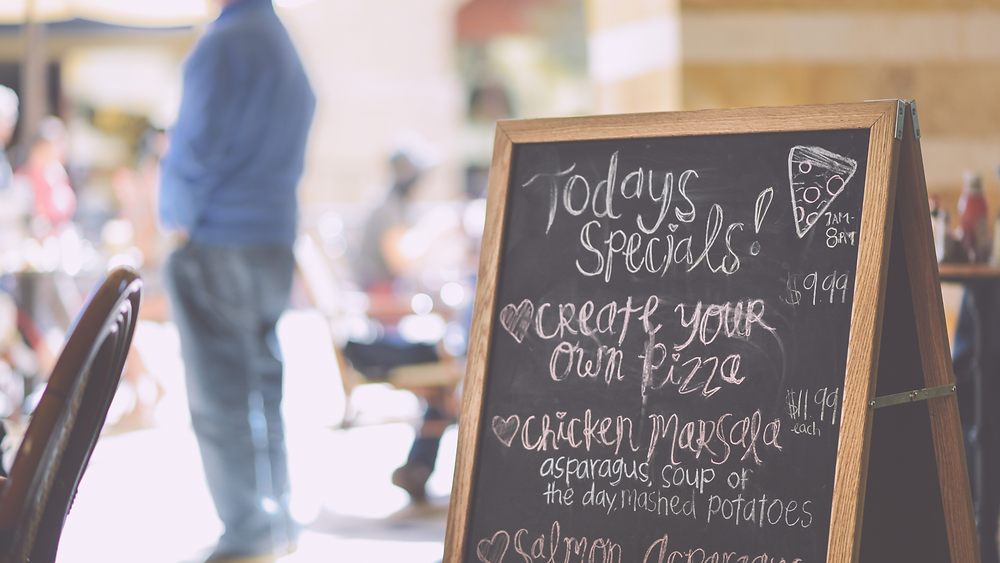 Todays
Specials!
7AM-
8PM
$9.99
Create your
own Pizza
$11.99
each
Chicken Marsala
asparagus, soup of
the day, mashed potatoes
Salmon Asparagus